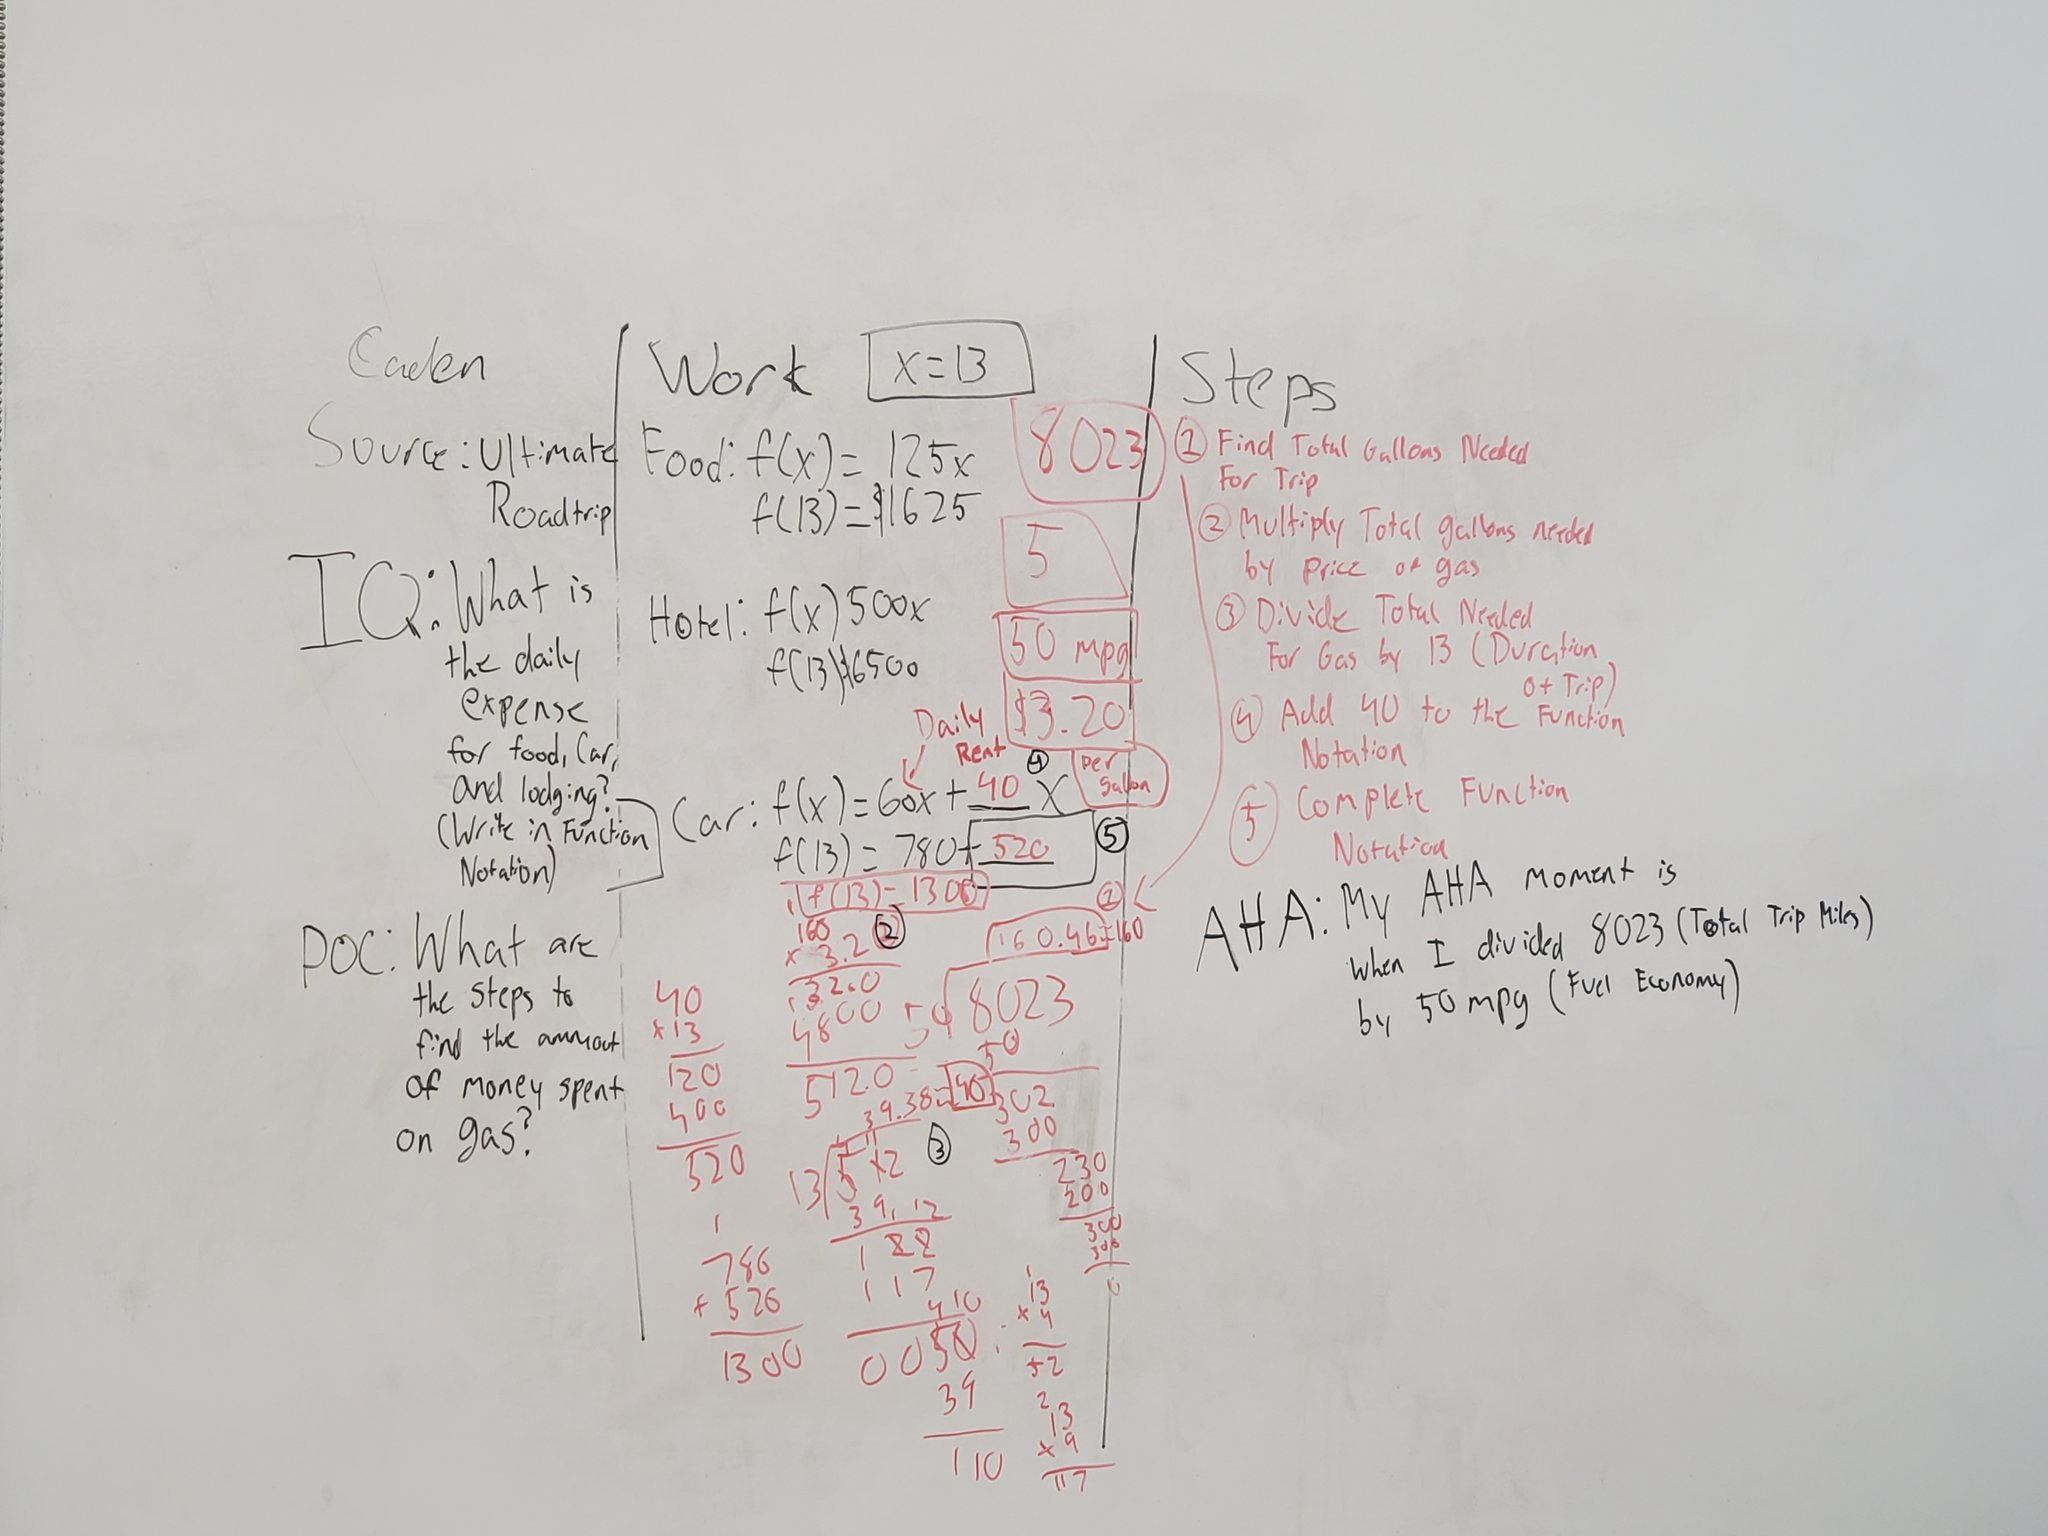 Caden
Source: Ultimate
Roadtrip
IQ: What is
the daily
expense
for food, Car,
and lodging?
(Write in Function
Notation)
POC: What are
the steps to
find the ammout
of money spent
on gas?
Work
x=13
Food: f(x)= 125x
f(13)=$1625
Hotel: f(x) 500x
f(13)$6500
8023
5
50 mpg
$3.20
per
Gallon
Daily
Rent
4
Car: f(x)=60x+40 x
f(13)= 780+520
5
f(13)=1300
160
x 3.2
2
320.0
4800
512.0
40
x 13
120
400
520
1
780
+ 520
1300
39.38=40
13 512
3
39
122
117
410
0050
39
110
2
160.46=160
50 8023
50
302
300
230
200
300
300
0
1
13
x 4
52
2
13
x 9
117
Steps
1 Find Total Gallons Needed
For Trip
2 Multiply Total gallons needed
by price of gas
3 Divide Total Needed
For Gas by 13 (Duration
of Trip)
4 Add 40 to the Function
Notation
5 Complete Function
Notation
AHA: My AHA moment is
when I divided 8023 (Total Trip Miles)
by 50 mpg (Fuel Economy)